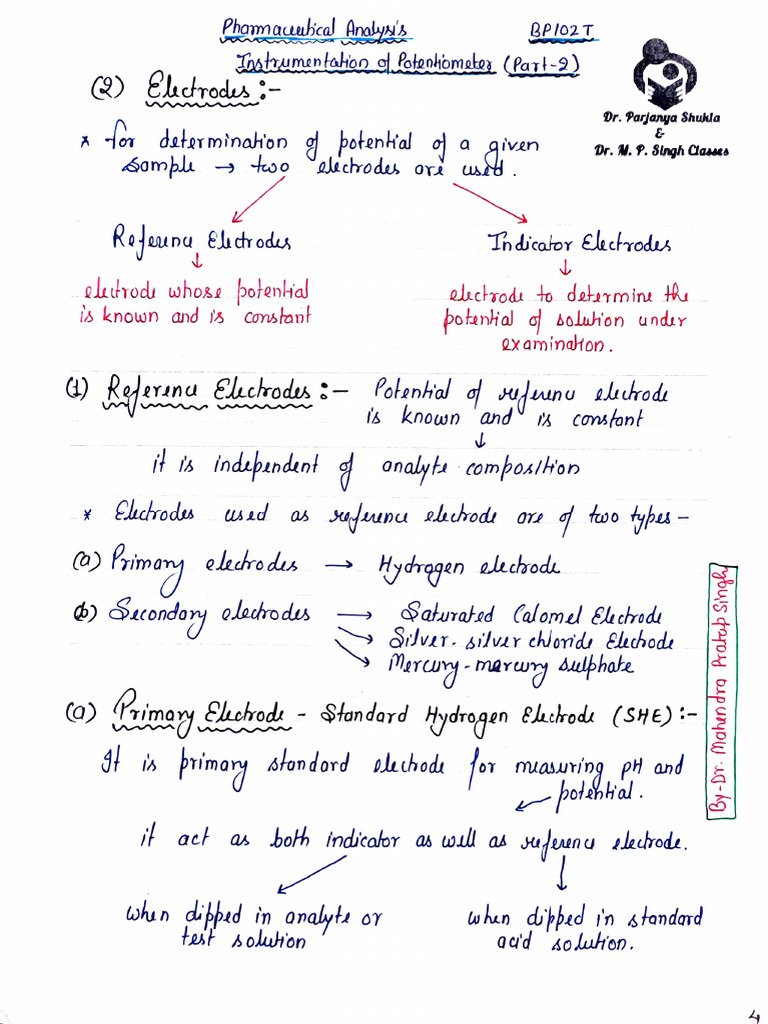 Pharmaceutical Analysis BP102T
Instrumentation of Potentiometer (Part-2)
Dr. Parjanya Shukla
&
Dr. M. P. Singh Classes
(2) Electrodes:-
* for determination of potential of a given
sample → two electrodes are used.
Reference Electrodes
Indicator Electrodes
↓
↓
electrode whose potential
is known and is constant
electrode to determine the
potential of solution under
examination.
(1) Reference Electrodes:- Potential of reference electrode
is known and is constant
↓
it is independent of analyte composition
* Electrodes used as reference electrode are of two types-
(a) Primary electrodes → Hydrogen electrode
(b) Secondary electrodes → Saturated Calomel Electrode
→ Silver-silver chloride Electrode
→ Mercury-mercury sulphate
(a) Primary Electrode - Standard Hydrogen Electrode (SHE):-
It is primary standard electrode for measuring pH and
potential.
it act as both indicator as well as reference electrode.
when dipped in analyte or
test solution
when dipped in standard
acid solution.
By-Dr. Mahendra Pratap Singh
4